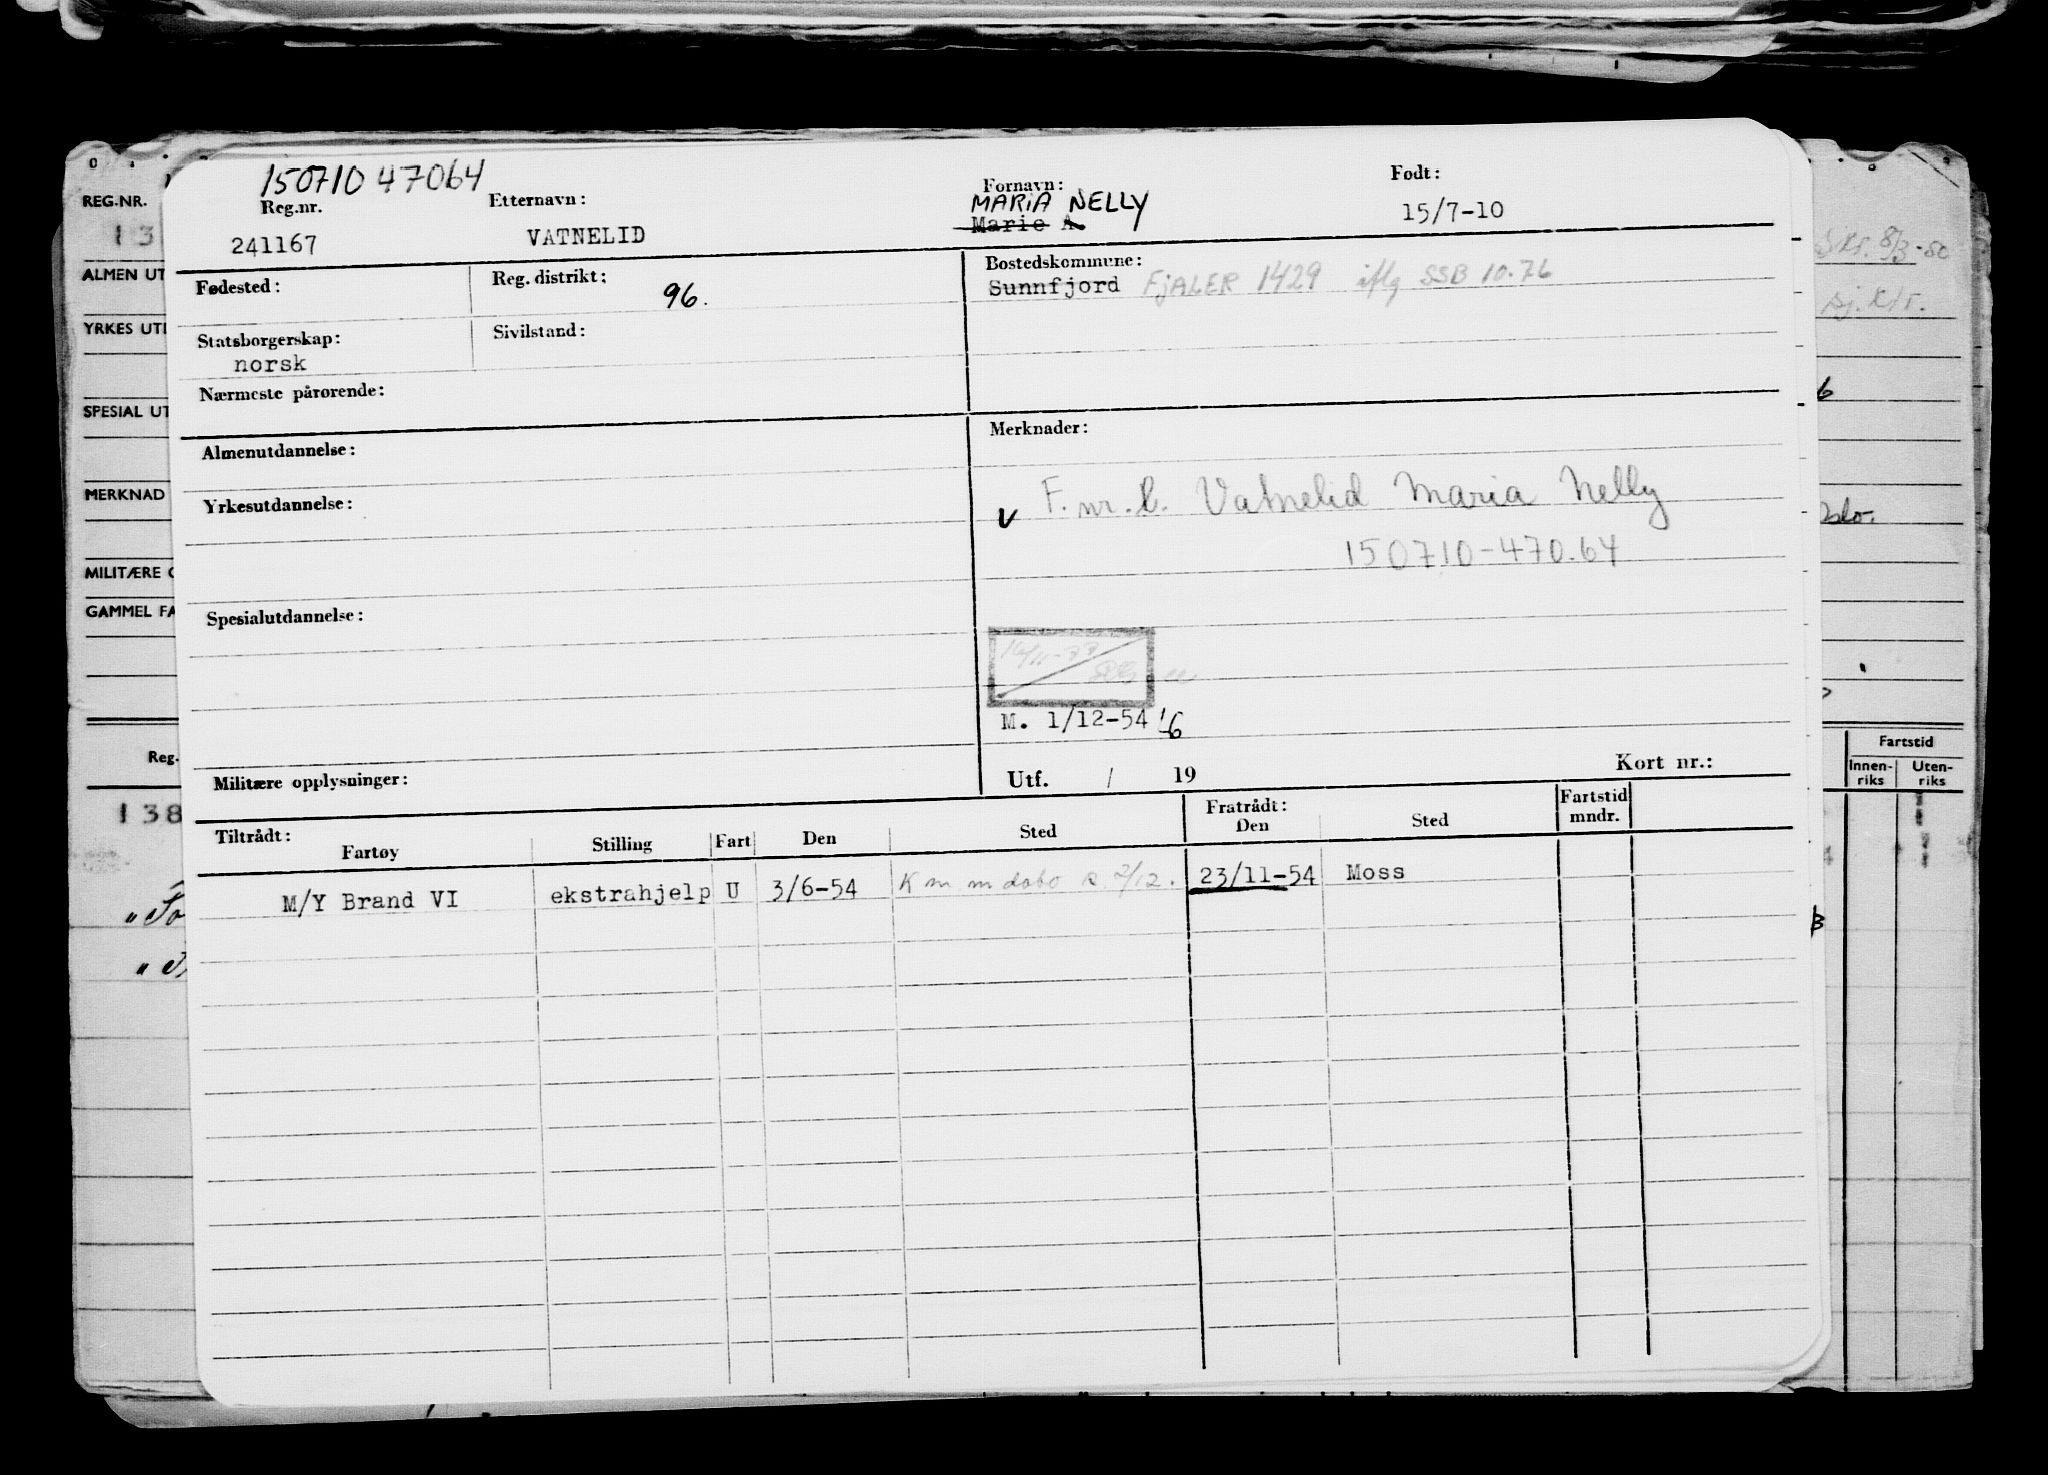 150710 47064
Reg.nr. Etternavn: Fornavn: Født:
MARIA NELLY
241167 VATNELID Marie A. 15/7-10
Fødested: Reg. distrikt: 96. Bostedskommune:
Sunnfjord FJALER 1429 iflg SSB 10.76
Statsborgerskap: Sivilstand:
norsk
Nærmeste pårørende:
Almenutdannelse: Merknader:
Yrkesutdannelse:
v F. nr. Vatnelid Maria Nelly
150710-470.64
Spesialutdannelse:
M. 1/12-54
Militære opplysninger: Utf. / 19 Kort nr.:
Tiltrådt: Fratrådt: Fartstid mndr.
Fartøy Stilling Fart Den Sted Den Sted
M/Y Brand VI ekstrahjelp U 3/6-54 23/11-54 Moss
REG.NR.
13
ALMEN UT
YRKES UT
SPESIAL UT
MERKNAD
MILITÆRE
GAMMEL FA
Reg.
138
8/3-50
Oslo.
Fartstid
Innen-riks Uten-riks